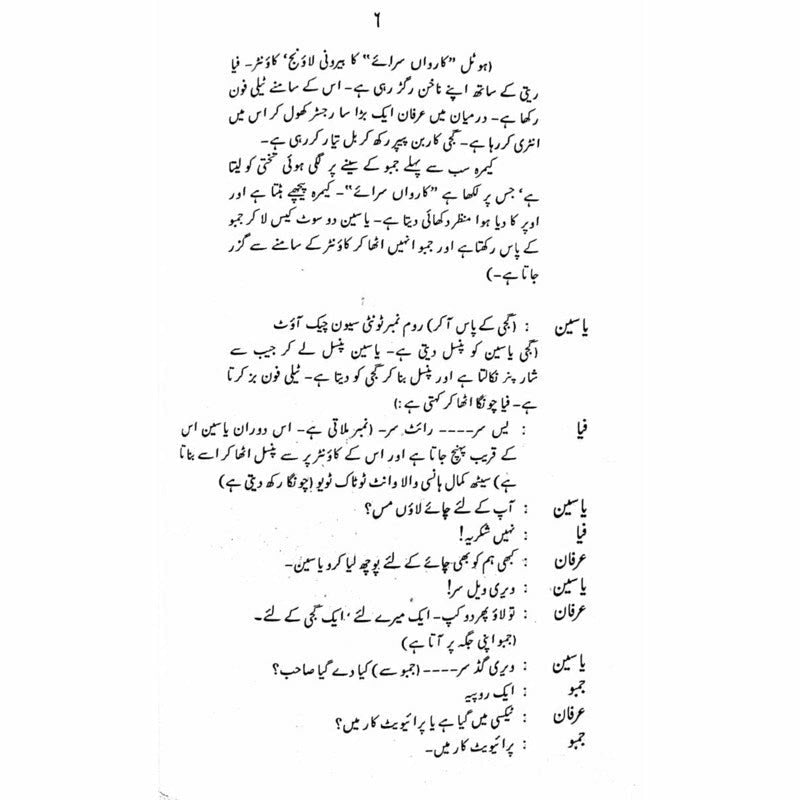 ۶
(ہوٹل "کارواں سرائے" کا بیرونی لاؤنج' کاؤنٹر۔ فیا
ریتی کے ساتھ اپنے ناخن رگڑ رہی ہے۔ اس کے سامنے ٹیلی فون
رکھا ہے۔ درمیان میں عرفان ایک بڑا سا رجسٹر کھول کر اس میں
انٹری کر رہا ہے۔ گجی کاربن پیپر رکھ کر بل تیار کر رہی ہے۔
کیمرہ سب سے پہلے جمبو کے سینے پر لگی ہوئی تختی کو لیتا
ہے' جس پر لکھا ہے "کارواں سرائے"۔ کیمرہ پیچھے ہٹتا ہے اور
اوپر کا دیا ہوا منظر دکھائی دیتا ہے۔ یاسین دو سوٹ کیس لا کر جمبو
کے پاس رکھتا ہے اور جمبو انہیں اٹھا کر کاؤنٹر کے سامنے سے گزر
جاتا ہے۔)
یاسین : (گجی کے پاس آ کر) روم نمبر ٹونٹی سیون چیک آؤٹ
(گجی یاسین کو پنسل دیتی ہے۔ یاسین پنسل لے کر جیب سے
شارپنر نکالتا ہے اور پنسل بنا کر گجی کو دیتا ہے۔ ٹیلی فون بز کرتا
ہے۔ فیا چونگا اٹھا کر کہتی ہے:)
فیا : یس سر---- رائٹ سر۔ (نمبر ملاتی ہے۔ اس دوران یاسین اس
کے قریب پہنچ جاتا ہے اور اس کے کاؤنٹر پر سے پنسل اٹھا کر اسے بناتا
ہے) سیٹھ کمال ہانسی والا وانٹ ٹو ٹاک ٹو یو (چونگا رکھ دیتی ہے)
یاسین : آپ کے لئے چائے لاؤں مس؟
فیا : نہیں شکریہ!
عرفان : کبھی ہم کو بھی چائے کے لئے پوچھ لیا کرو یاسین۔
یاسین : ویری ویل سر!
عرفان : تو لاؤ پھر دو کپ۔ ایک میرے لئے' ایک گجی کے لئے۔
(جمبو اپنی جگہ پر آتا ہے)
یاسین : ویری گڈ سر---- (جمبو سے) کیا دے گیا صاحب؟
جمبو : ایک روپیہ
عرفان : ٹیکسی میں گیا ہے یا پرائیویٹ کار میں؟
جمبو : پرائیویٹ کار میں۔